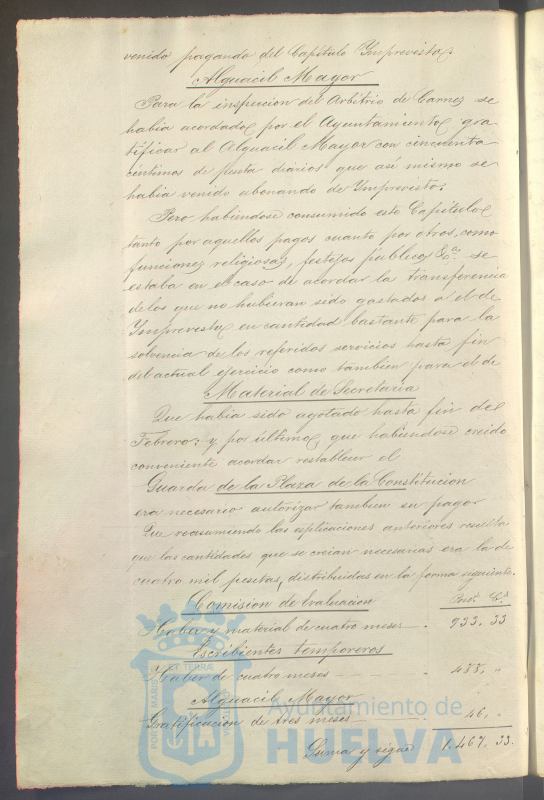 venido pagando del Capítulo Imprevistos.
Alguacil Mayor
Para la inspeccion del Arbitrio de Carnes se
habia acordado por el Ayuntamiento gra
tificar al Alguacil Mayor con cincuenta
centimos de peseta diarios que asi mismo se
habia venido abonando de Imprevistos.
Pero habiendose consumido este Capítulo
tanto por aquellos pagos cuanto por otros, como
funciones religiosas, festejos publicos &a. se
estaba en el caso de acordar la transferencia
de los que no hubieran sido gastados á el de
Imprevistos en cantidad bastante para la
solvencia de los referidos servicios hasta fin
del actual ejercicio como tambien para el de
Material de Secretaria
Que habia sido agotado hasta fin de
Febrero; y por último que habiendose creido
conveniente acordar restablecer el
Guarda de la Plaza de la Constitucion
era necesario autorizar tambien su pago.
Que resumiendo las esplicaciones anteriores resulta
que las cantidades que se creian necesarias era la de
cuatro mil pesetas, distribuidas en la forma siguiente.
Comision de Evaluacion
Haber y material de cuatro meses 933. 33
Escribientes temporeros
Haber de cuatro meses 488. "
Alguacil Mayor
Gratificacion de tres meses 46. "
Suma y sigue 1.467. 33.
PORTUS MARIS ET TERRÆ
Ayuntamiento de
HUELVA